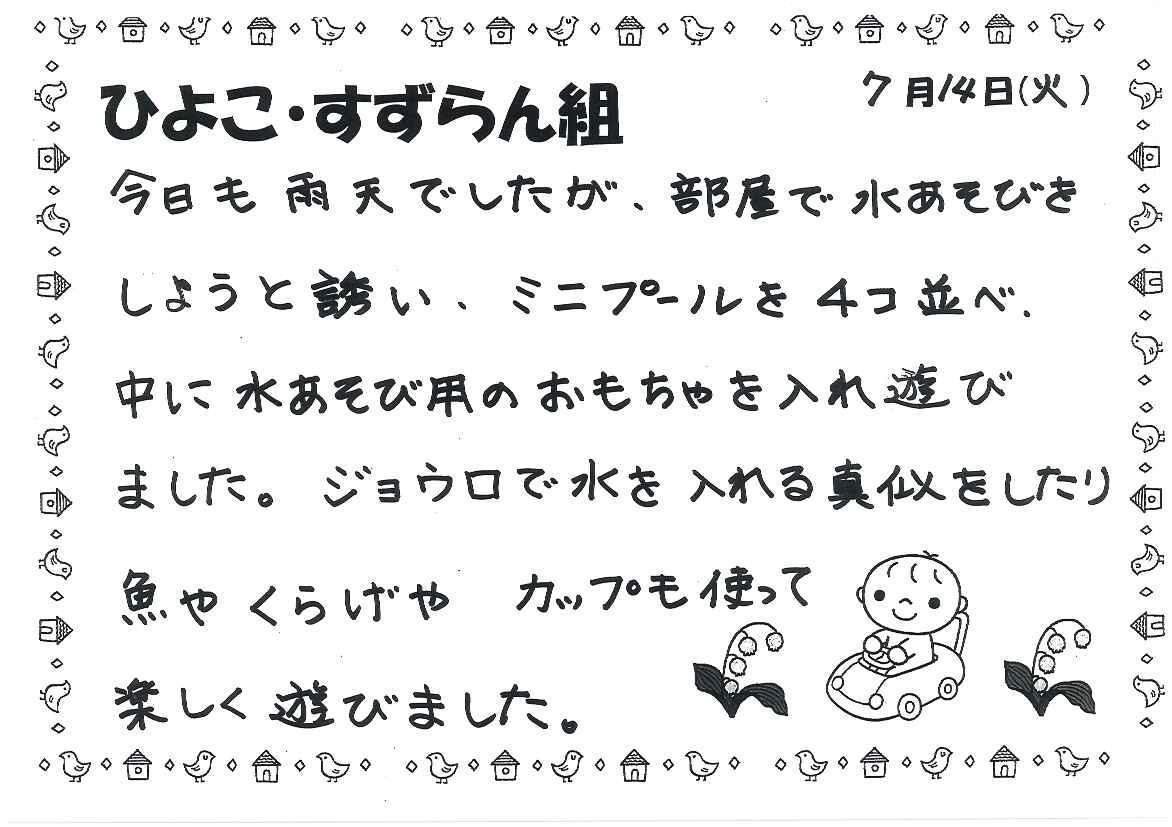 ひよこ・すずらん組
7月14日(火)
今日も雨天でしたが、部屋で水あそびを
しようと誘い、ミニプールを4コ並べ、
中に水あそび用のおもちゃを入れ遊び
ました。ジョウロで水を入れる真似をしたり
魚やくらげや カップも使って
楽しく遊びました。